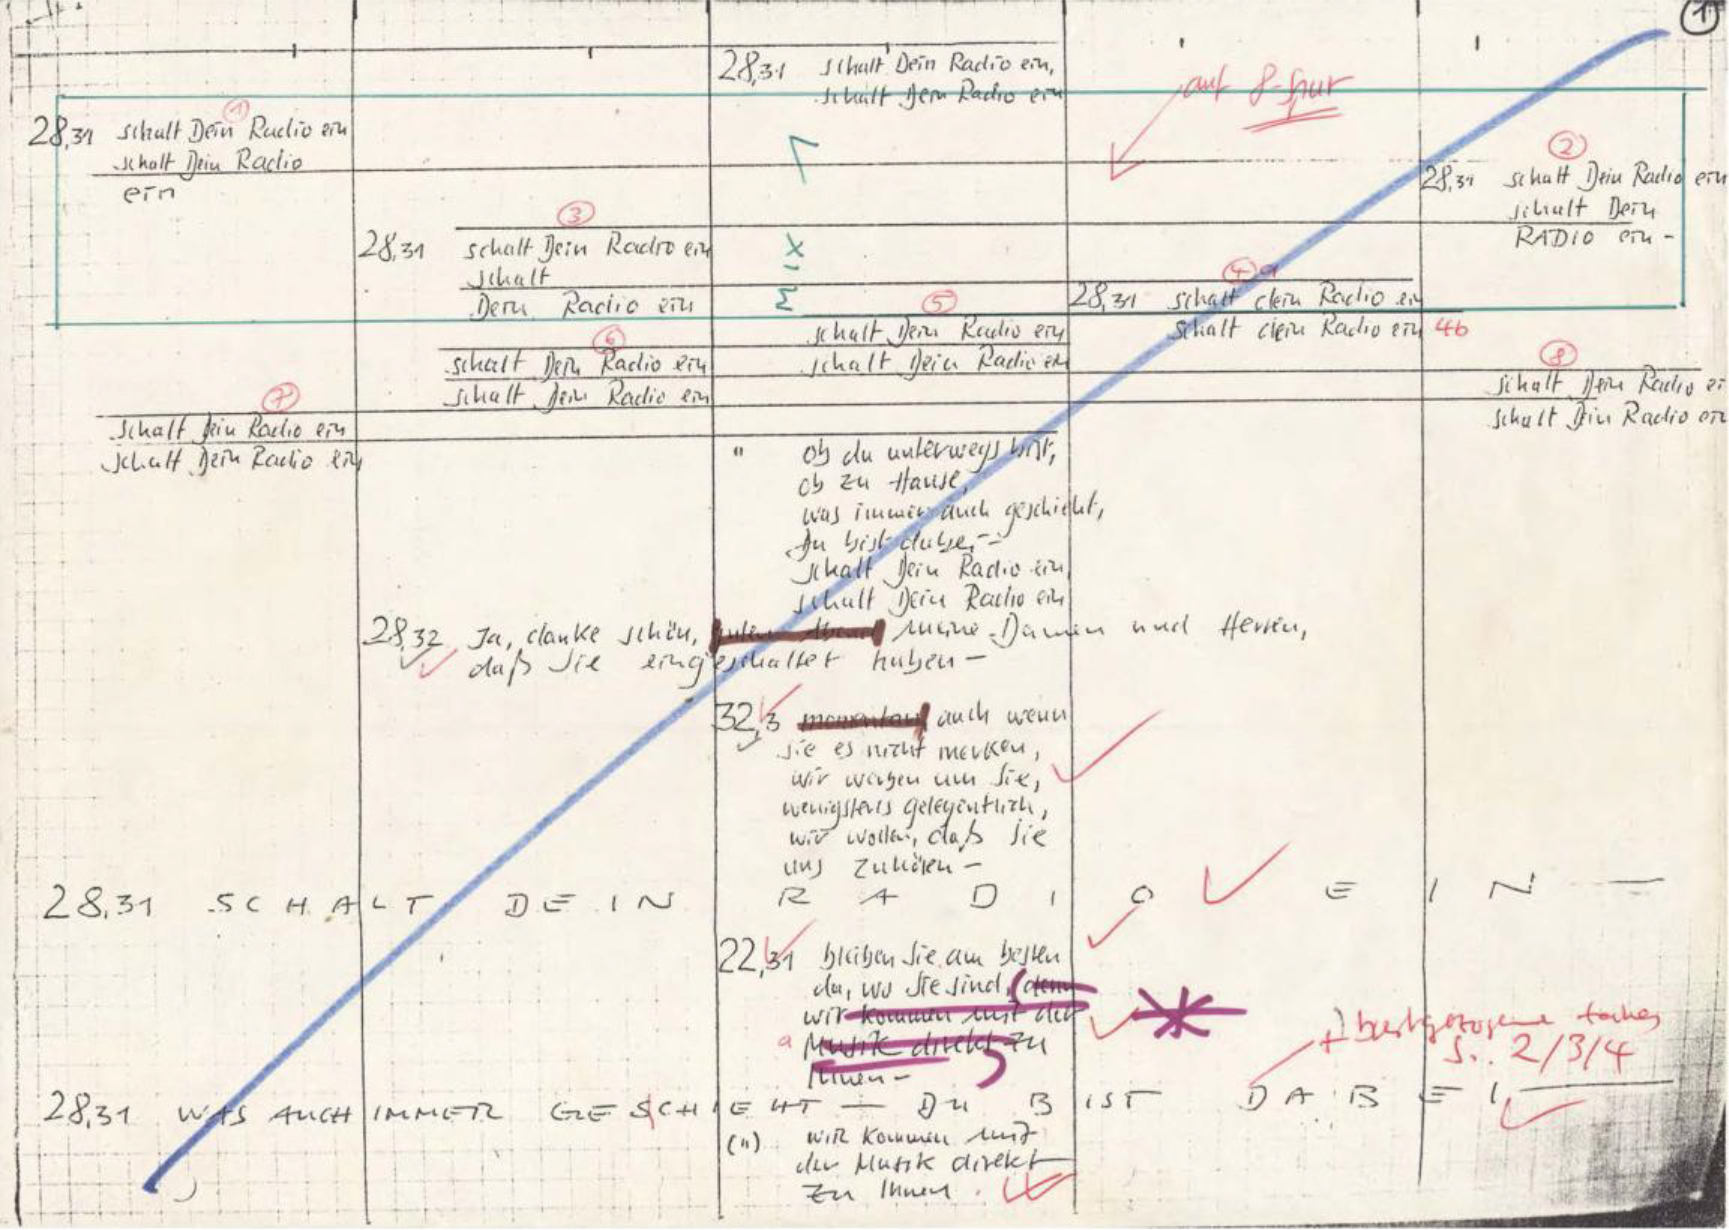 ①
28,31 schalt Dein Radio ein,
schalt Dein Radio ein
auf 8-Spur
①
28,31 schalt Dein Radio ein
schalt Dein Radio
ein
②
28,31 schalt Dein Radio ein
schalt Dein
RADIO ein -
MIX 1
③
28,31 schalt Dein Radio ein
schalt
Dein Radio ein
④a
28,31 schalt dein Radio ein
schalt dein Radio ein 4b
⑤
schalt Dein Radio ein
schalt Dein Radio ein
⑥
schalt Dein Radio ein
schalt Dein Radio ein
⑧
schalt Dein Radio ei
schalt Dein Radio ein
⑦
schalt Dein Radio ein
schalt Dein Radio ein
" ob du unterwegs bist,
ob zu Hause,
was immer auch geschieht,
Du bist dabei -
schalt Dein Radio ein,
schalt Dein Radio ein
28,32 Ja, danke schön, guten Abend meine Damen und Herren,
daß Sie eingeschaltet haben -
32,3 momentan auch wenn
sie es nicht merken,
wir werben um Sie,
wenigstens gelegentlich,
wir wollen, daß Sie
uns zuhören -
28,31 SCHALT DEIN RADIO EIN —
22,31 bleiben Sie am besten
da, wo Sie sind, (denn
wir kommen mit der
a Musik direkt zu
Ihnen -
s. 2/3/4
28,31 WAS AUCH IMMER GESCHIEHT — DU BIST DABEI —
(") wir kommen mit
der Musik direkt
zu Ihnen.